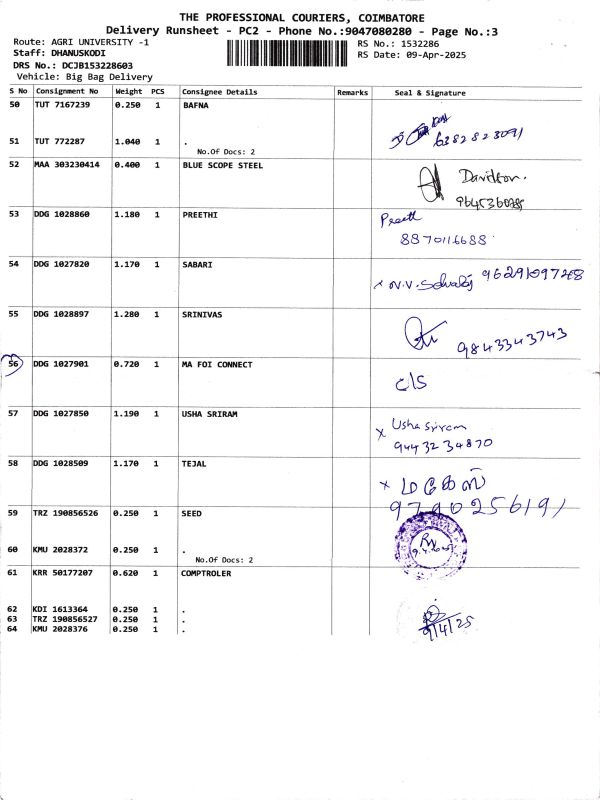 THE PROFESSIONAL COURIERS, COIMBATORE
Delivery Runsheet - PC2 - Phone No.:9047080280 - Page No.:3
Route: AGRI UNIVERSITY -1
RS No.: 1532286
Staff: DHANUSKODI
RS Date: 09-Apr-2025
DRS No.: DCJB153228603
Vehicle: Big Bag Delivery
S No Consignment No Weight PCS Consignee Details Remarks Seal & Signature
50 TUT 7167239 0.250 1 BAFNA
6382823091
51 TUT 772287 1.040 1 .
No.Of Docs: 2
52 MAA 303230414 0.400 1 BLUE SCOPE STEEL
Davidson.
53 DDG 1028860 1.180 1 PREETHI
Preeth
8870116688
54 DDG 1027820 1.170 1 SABARI
x N.V. 96291097268
55 DDG 1028897 1.280 1 SRINIVAS
9843343743
56 DDG 1027901 0.720 1 MA FOI CONNECT
C/S
57 DDG 1027850 1.190 1 USHA SRIRAM
x Usha Sriram
94432 34870
58 DDG 1028509 1.170 1 TEJAL
x மகேஸ்
9790256191
59 TRZ 190856526 0.250 1 SEED
60 KMU 2028372 0.250 1 .
No.Of Docs: 2
61 KRR 50177207 0.620 1 COMPTROLER
62 KDI 1613364 0.250 1 .
63 TRZ 190856527 0.250 1 .
64 KMU 2028376 0.250 1 .
9/4/25